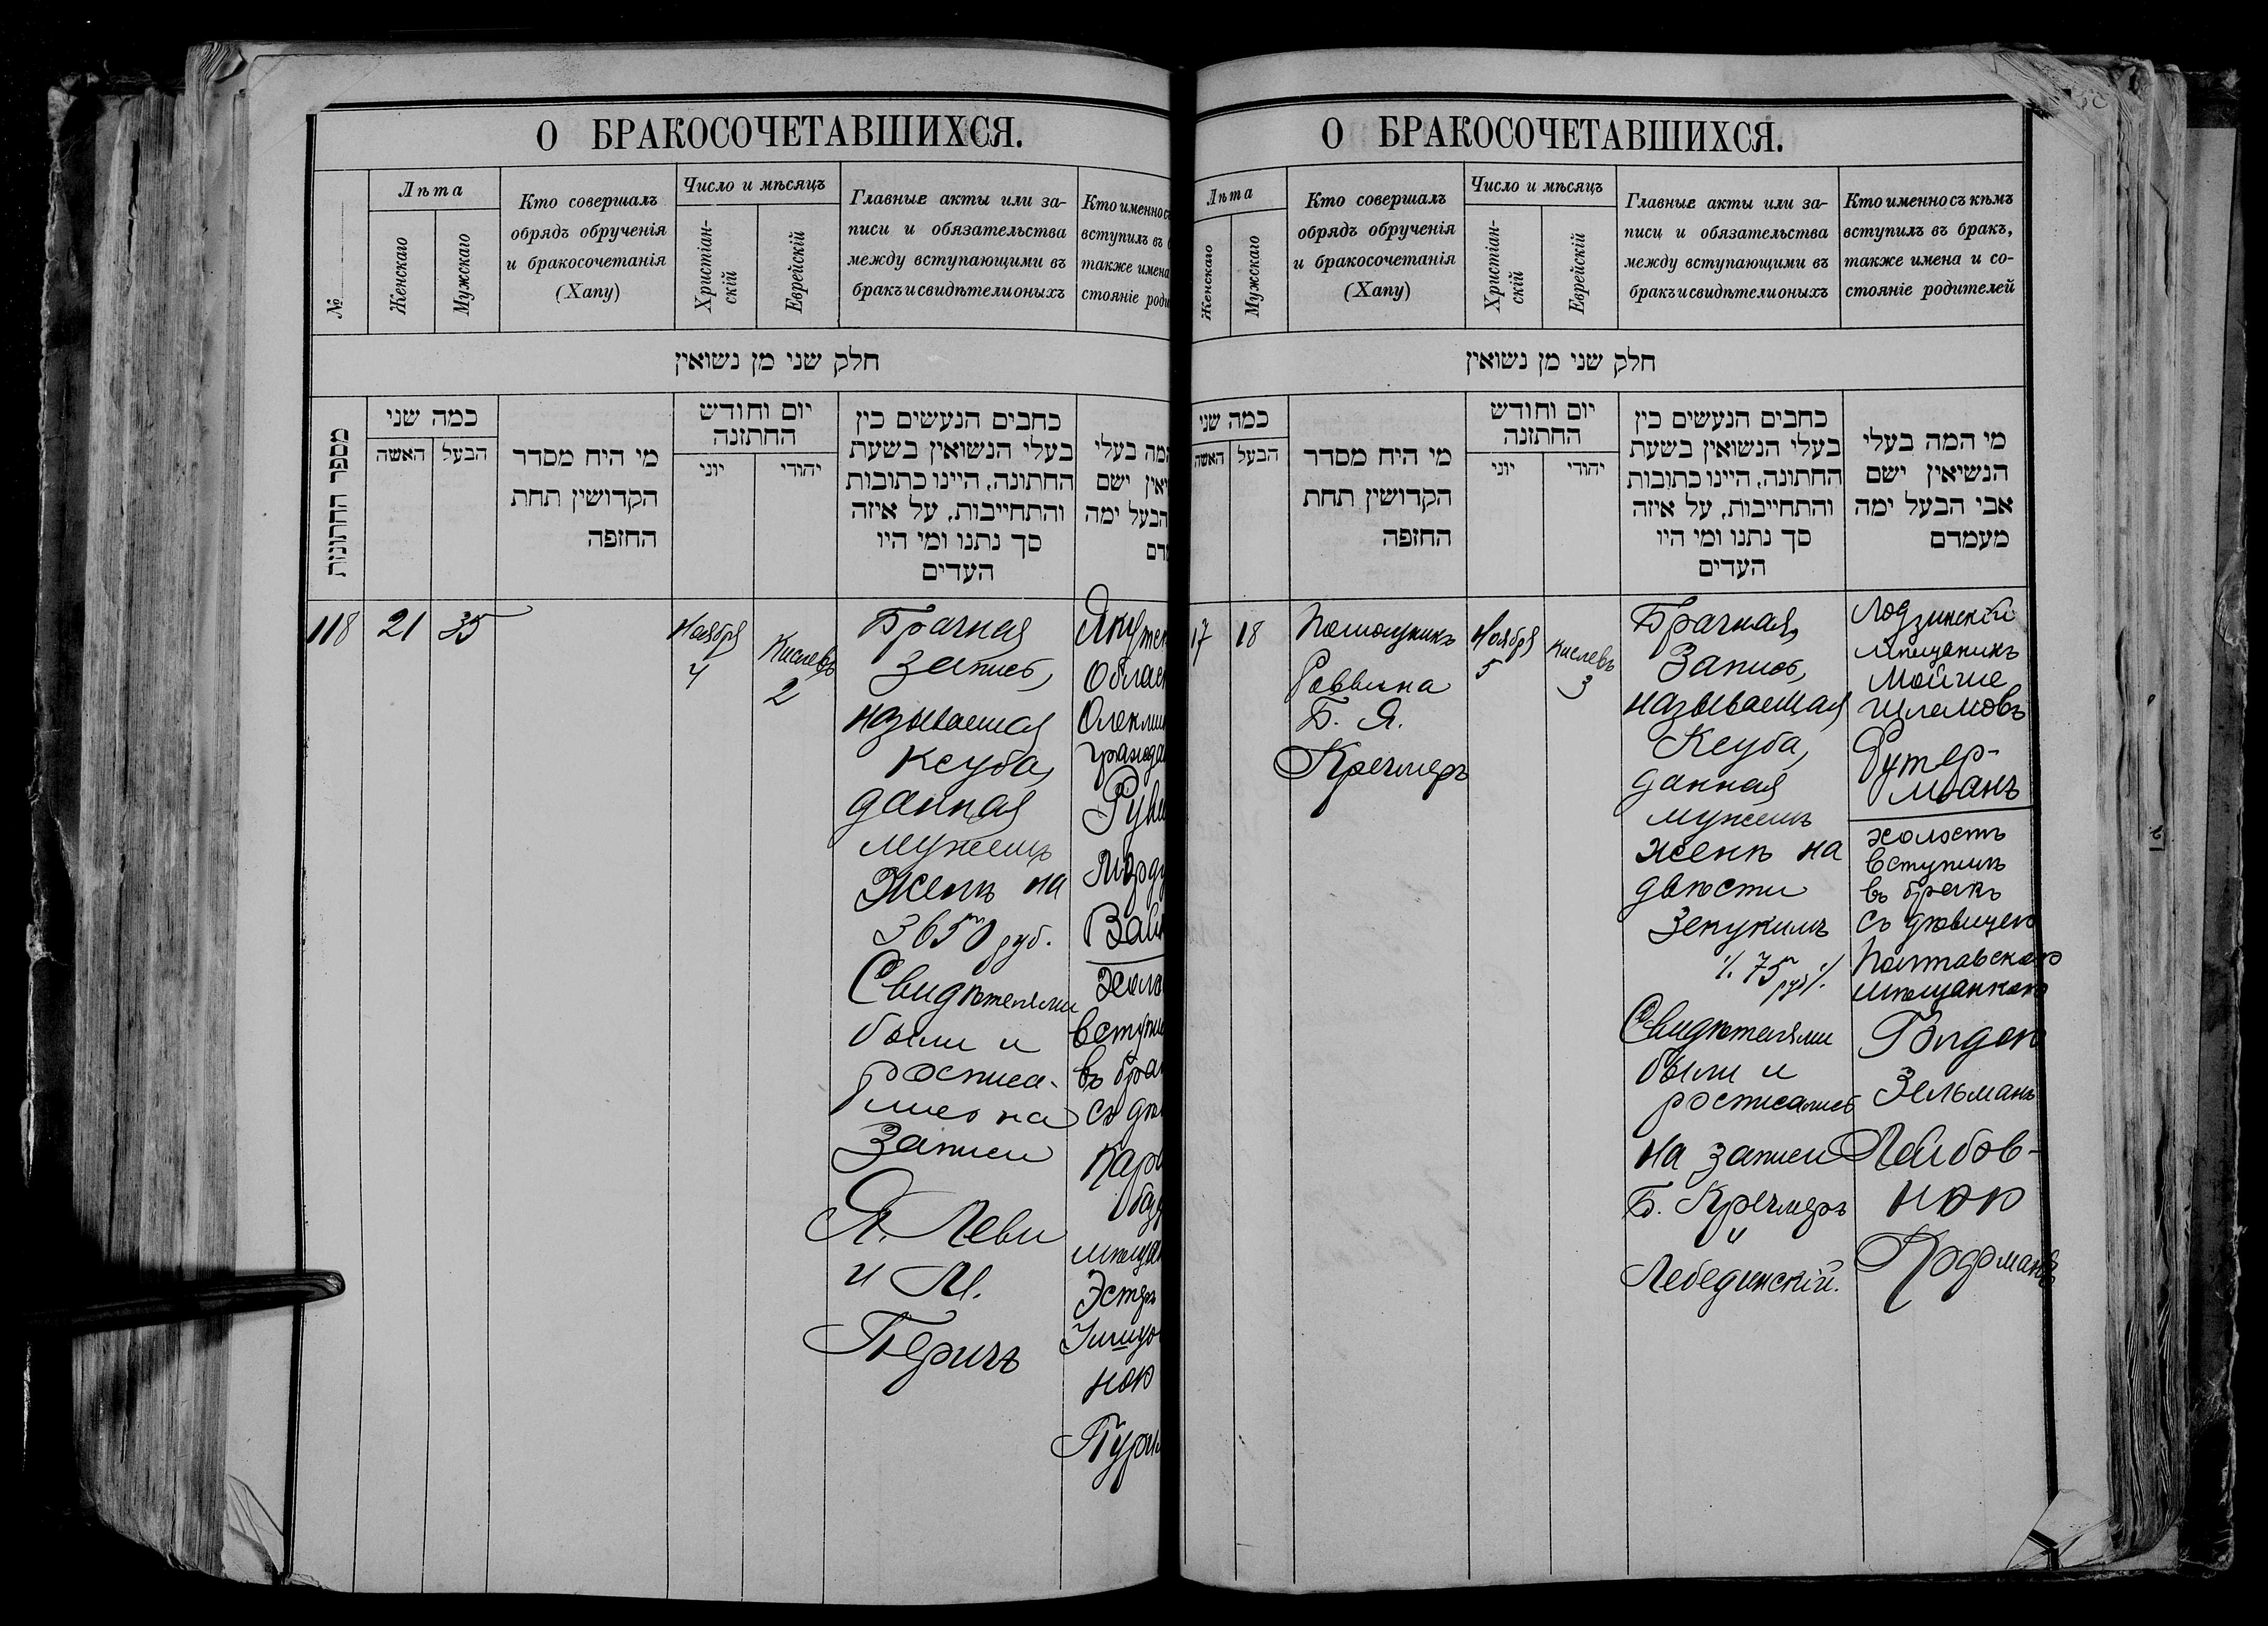 О БРАКОСОЧЕТАВШИХСЯ.
№
Лѣта
Женскаго
Мужскаго
Кто совершалъ
обрядъ обрученія
и бракосочетанія
(Хапу)
Число и мѣсяцъ
Христіан-
скій
Еврейскій
Главные акты или за-
писи и обязательства
между вступающими въ
бракъ и свидѣтели оныхъ
Кто именно съ
вступилъ въ
также имена
стояніе
חלק שני מן נשואין
מספר החתונות
כמה שני
האשה
הבעל
מי היח מסדר
הקדושין תחת
החזפה
יום וחודש
החתזנה
יוני
יהודי
כחבים הנעשים כין
בעלי הנשואין בשעת
החתונה, היינו כתובות
והתחייבות, על איזה
סך נתנו ומי היו
העדים
המה בעלי
ישם
הבעל ימה
118
21
35
Ноября
4
Кислевъ
2
Брачная
запись,
называемая
Ксуба,
данная
мужемъ
женѣ на
3650 руб.
Свидѣтелями
были и
росписа-
лись на
Записи
Я. Леви
и М.
Перичъ
въ
Эстеръ
ною
О БРАКОСОЧЕТАВШИХСЯ.
Лѣта
Женскаго
Мужскаго
Кто совершалъ
обрядъ обрученія
и бракосочетанія
(Хапу)
Число и мѣсяцъ
Христіан-
скій
Еврейскій
Главные акты или за-
писи и обязательства
между вступающими въ
бракъ и свидѣтели оныхъ
Кто именно съ кѣмъ
вступилъ въ бракъ,
также имена и со-
стояніе родителей
חלק שני מן נשואין
כמה שני
האשה
הבעל
מי היח מסדר
הקדושין תחת
החזפה
יום וחודש
החתזנה
יוני
יהודי
כחבים הנעשים כין
בעלי הנשואין בשעת
החתונה, היינו כתובות
והתחייבות, על איזה
סך נתנו ומי היו
העדים
מי המה בעלי
הנשיאין ישם
אבי הבעל ימה
מעמדם
17
18
Помощникъ
Раввина
Б. Я.
Кречмеръ
Ноября
5
Кислевъ
3
Брачная
Запись,
называемая
Ксуба,
данная
мужемъ
женѣ на
двѣсти
Зекукимъ
75 руб.
Свидѣтелями
были и
росписались
на записи
Б. Кречмеръ
и
Лебединскій.
Лодзинскій
мѣщанинъ
Мойше
Шлемовъ
Рутер-
манъ
холостъ
вступилъ
въ бракъ
съ дѣвицею
Полтавскою
мѣщанкою
Голдою
Зельманъ
Лейбов-
ною